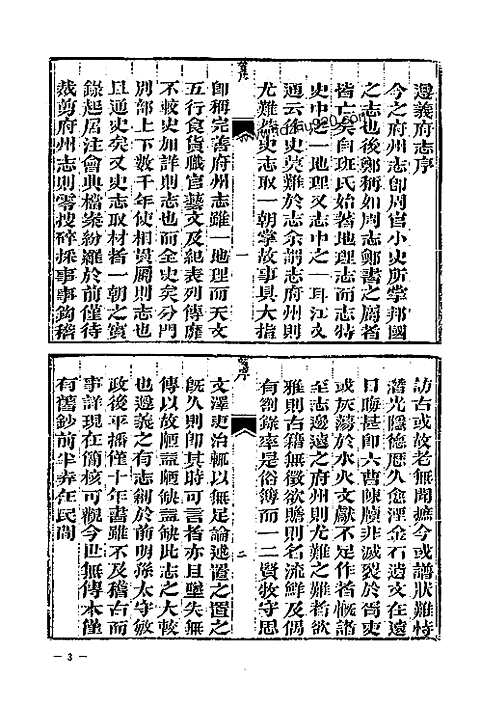 遵義府志序
今之府州志卽周官小史所掌邦國
之志也後鄭稱如周志鄭書之屬者
皆亡矣自班氏始著地理志而志特
史中之一地理又志中之一耳江文
通云修史莫難於志余謂志府州則
尤難葢史志取一朝掌故事具大指
卽稱完善府州志雖一地理而天文
五行食貨職官藝文及紀表列傳靡
不較史加詳則志也而全史矣分門
別部上下數千年使相貫屬則志也
且通史矣又史志取材者一朝之實
錄起居注會典檔案紛羅於前僅待
裁剪府州志則零搜碎採事事鉤稽
序
一
訪古或故老無聞摭今或譜狀難恃
潛光隱德厯久愈湮金石遺文在遠
日晦甚卽六曹陳牘非滅裂於胥吏
或灰蕩於水火文獻不足作者慨諸
至志邊遠之府州則尤難之難者欲
雅則古籍無徵欲贍則名流鮮及偶
有劄錄率是俗簿而一二賢牧守思
文澤吏治輒以無足論述置之置之
旣久則卽其時可言者亦且墜失無
傳以故陋益陋缺益缺此志之大較
也遵義之有志剏於前明孫太守敏
政後平播僅十年書雖不及稽古而
事詳現在簡核可觀今世無傳本僅
有舊鈔前半弆在民間
序
二
— 3 —